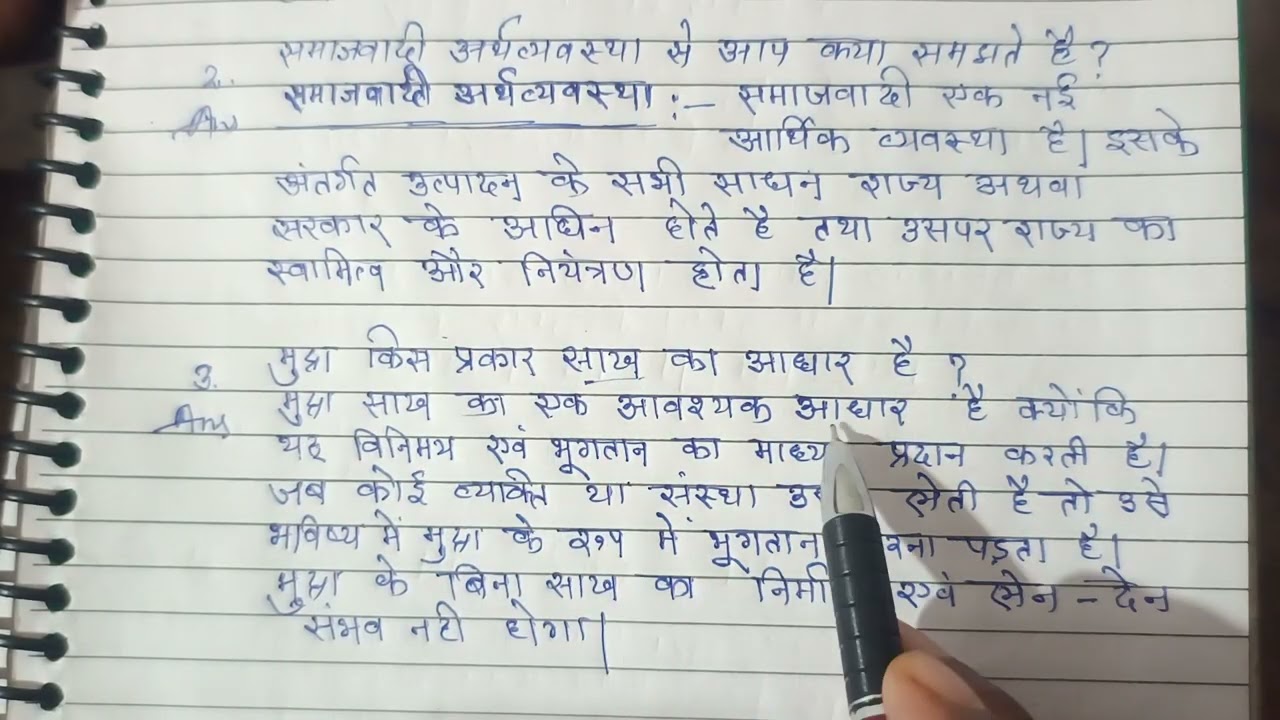 समाजवादी अर्थव्यवस्था से आप क्या समझते है ?
2.
समाजवादी अर्थव्यवस्था :- समाजवादी एक नई
Ans
आर्थिक व्यवस्था है| इसके
अंतर्गत उत्पादन के सभी साधन राज्य अथवा
सरकार के आधिन होते है तथा उसपर राज्य का
स्वामित्व और नियंत्रण होता है|
मुद्रा किस प्रकार साख का आधार है ?
3.
मुद्रा साख का एक आवश्यक आधार है क्योंकि
Ans
यह विनिमय एवं भूगतान का माध्य प्रदान करती है|
जब कोई व्यक्ति या संस्था लेती है तो उसे
भविष्य में मुद्रा के रुप में भूगतान पड़ता है|
मुद्रा के बिना साख का एवं लेन - देन
संभव नही होगा|